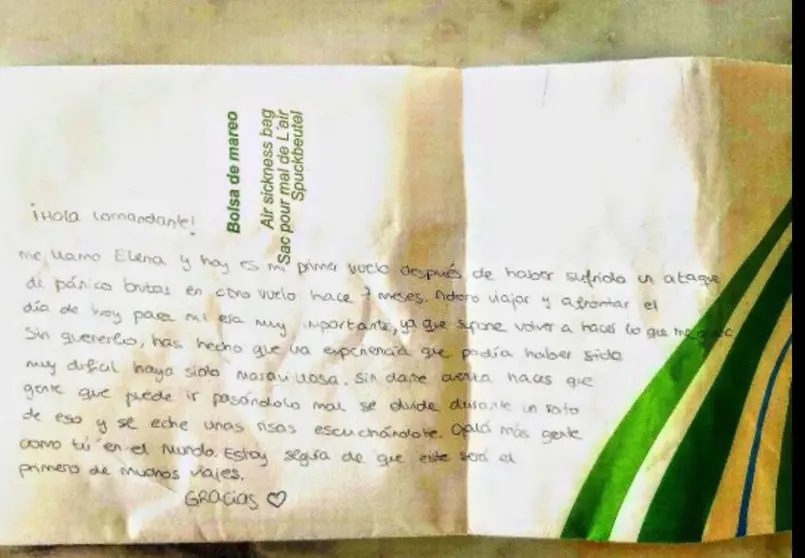 Bolsa de mareo
Air sickness bag
Sac pour mal de L'air
Spuckbeutel
¡Hola Comandante!
me llamo Elena y hoy es mi primer vuelo después de haber sufrido un ataque
de pánico brutas en otro vuelo hace 7 meses. Adoro viajar y afrontar el
día de hoy para mi era muy importante, ya que supone volver a hacer lo que me
Sin quererlo, has hecho que una experiencia que podía haber sido
muy dificil haya sido maravillosa. Sin darte cuenta haces que
gente que puede ir pasándolo mal se olvide durante un rato
de eso y se eche unas risas escuchándote. Ojalá más gente
como tú en el mundo. Estoy segura de que este será el
primero de muchos viajes.
GRACIAS ♡